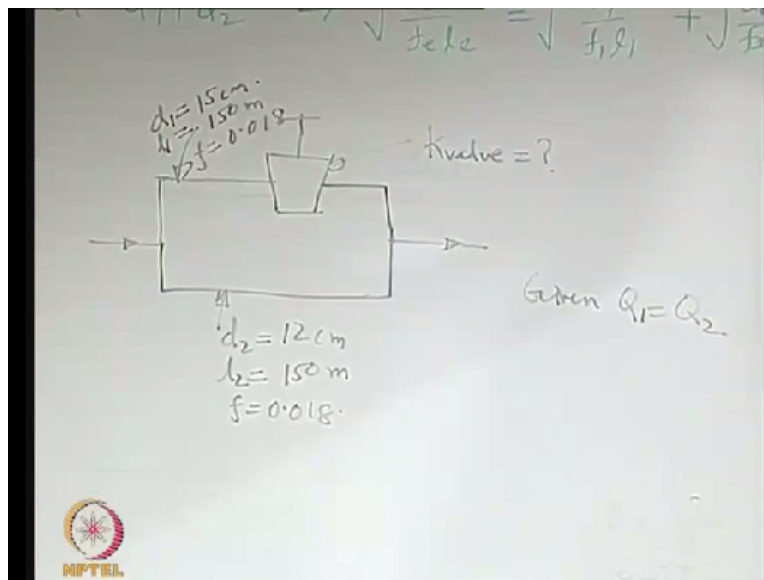 d₂ ⇒ √ / fe le = √ / f₁ l₁ + √
d₁ = 15 cm.
l₁ = 150 m
f = 0.018
K valve = ?
Given Q₁ = Q₂
d₂ = 12 cm
l₂ = 150 m
f = 0.018.
NPTEL